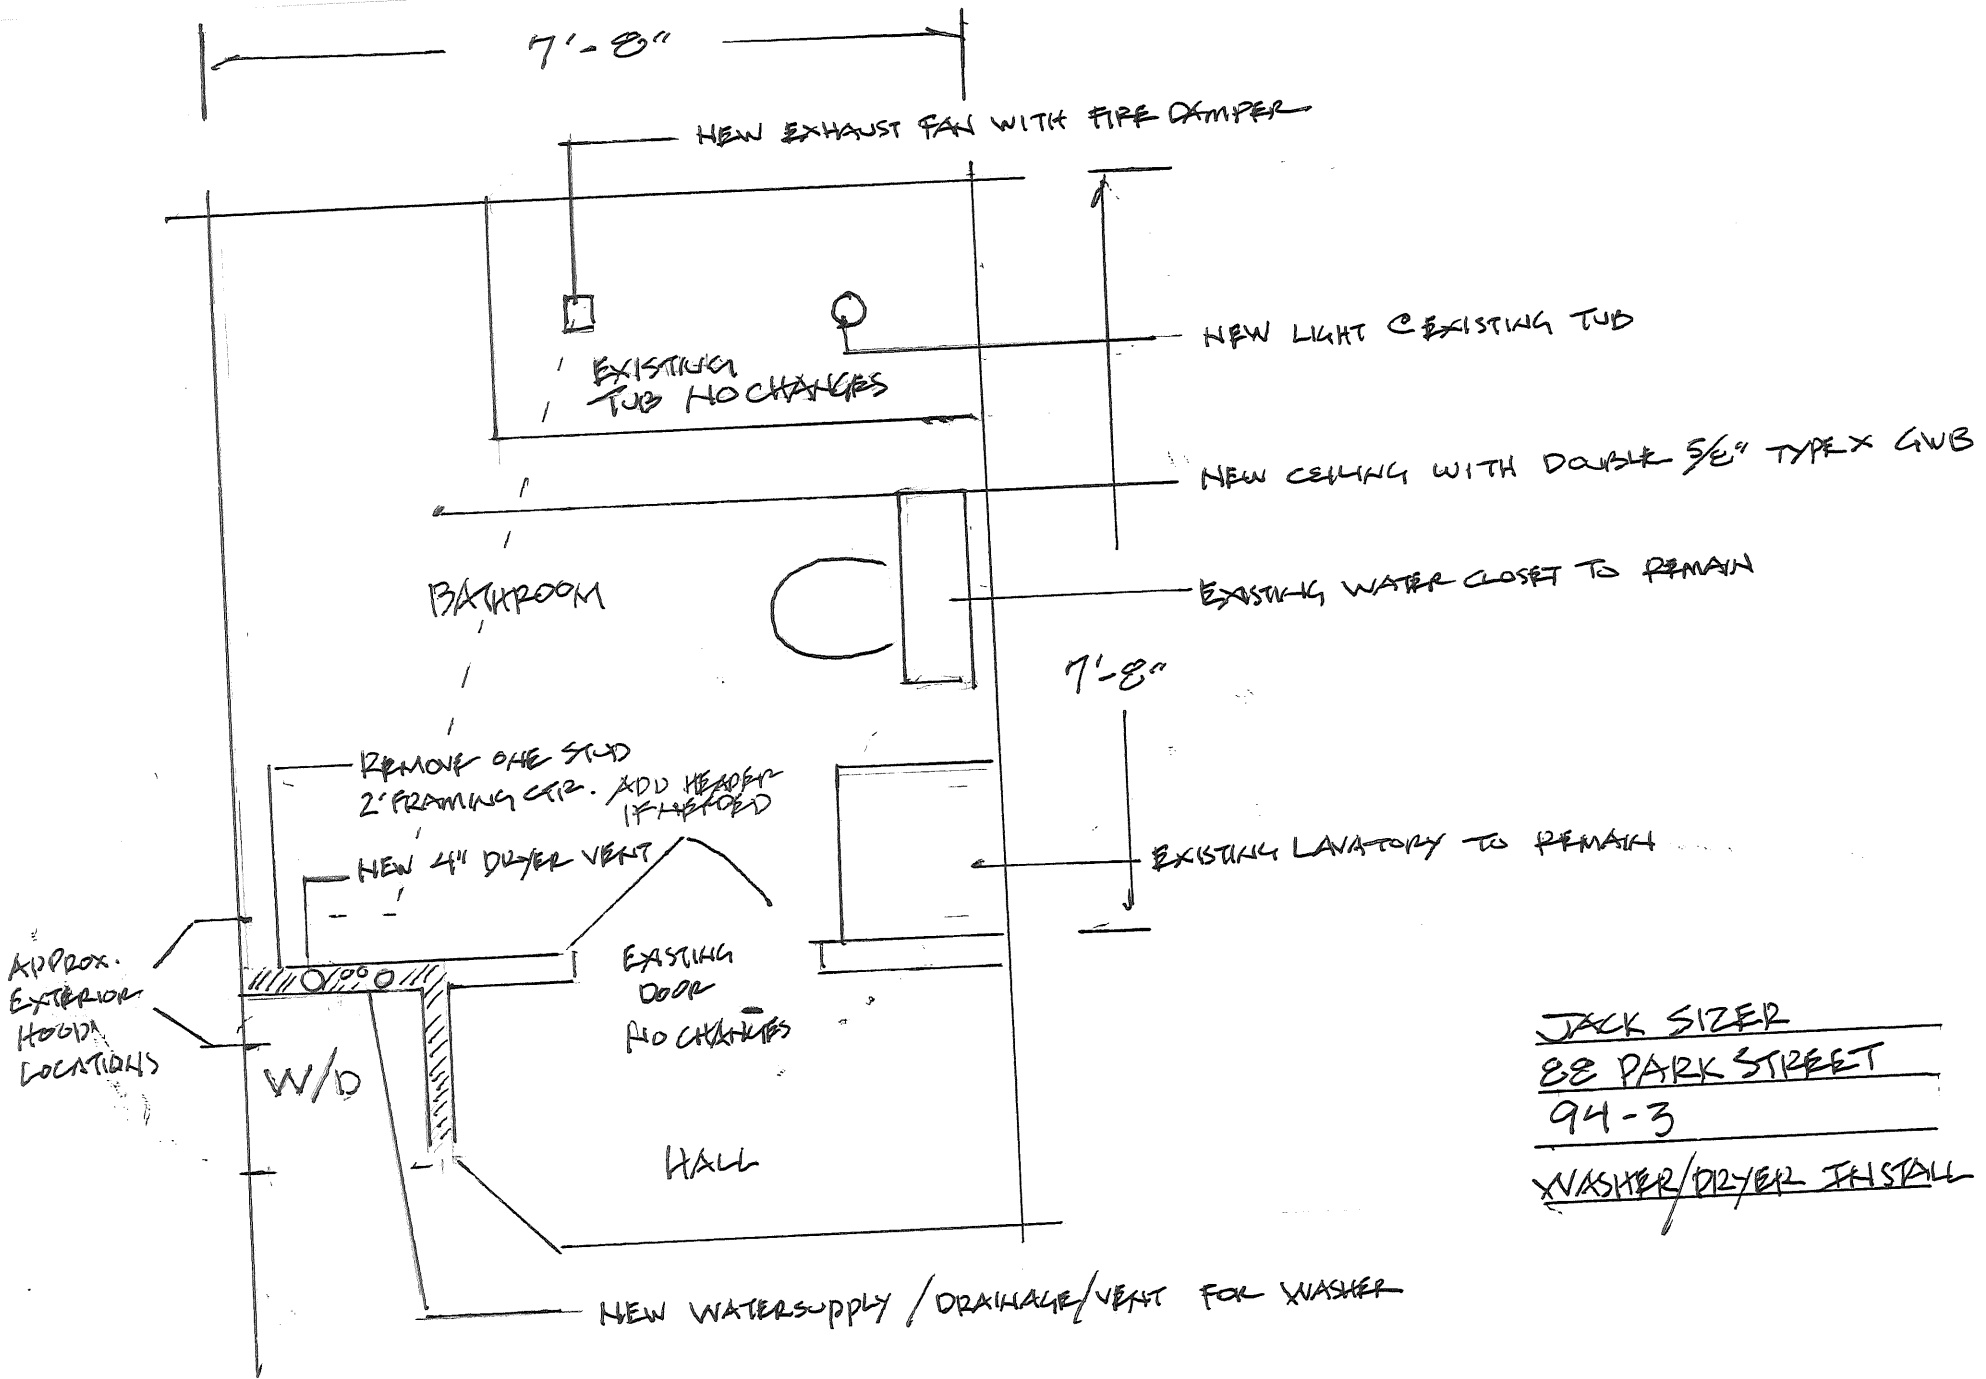 7'-8"
NEW EXHAUST FAN WITH FIRE DAMPER
NEW LIGHT @ EXISTING TUB
EXISTING
TUB NO CHANGES
NEW CEILING WITH DOUBLE 5/8" TYPE X GWB
EXISTING WATER CLOSET TO REMAIN
BATHROOM
7'-8"
REMOVE ONE STUD
2' FRAMING CTR. ADD HEADER
IF NEEDED
NEW 4" DRYER VENT
EXISTING LAVATORY TO REMAIN
APPROX.
EXTERIOR
HOOD
LOCATIONS
EXISTING
DOOR
NO CHANGES
W/D
HALL
JACK SIZER
88 PARK STREET
94-3
WASHER/DRYER INSTALL
NEW WATERSUPPLY/DRAINAGE/VENT FOR WASHER